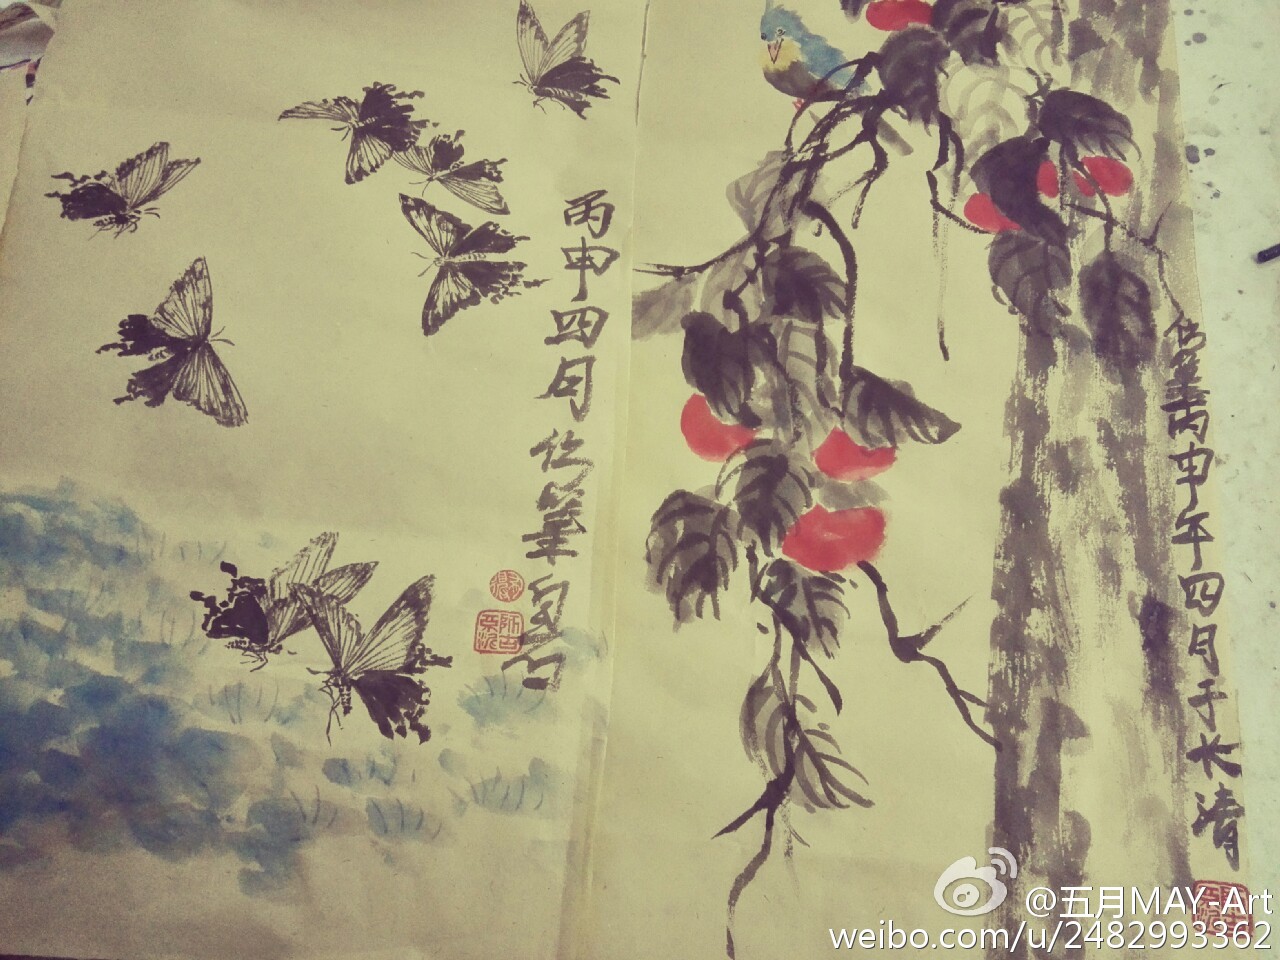 丙申四月仫筆
丙申年四月于长清
@五月MAY-Art
weibo.com/u/2482993362